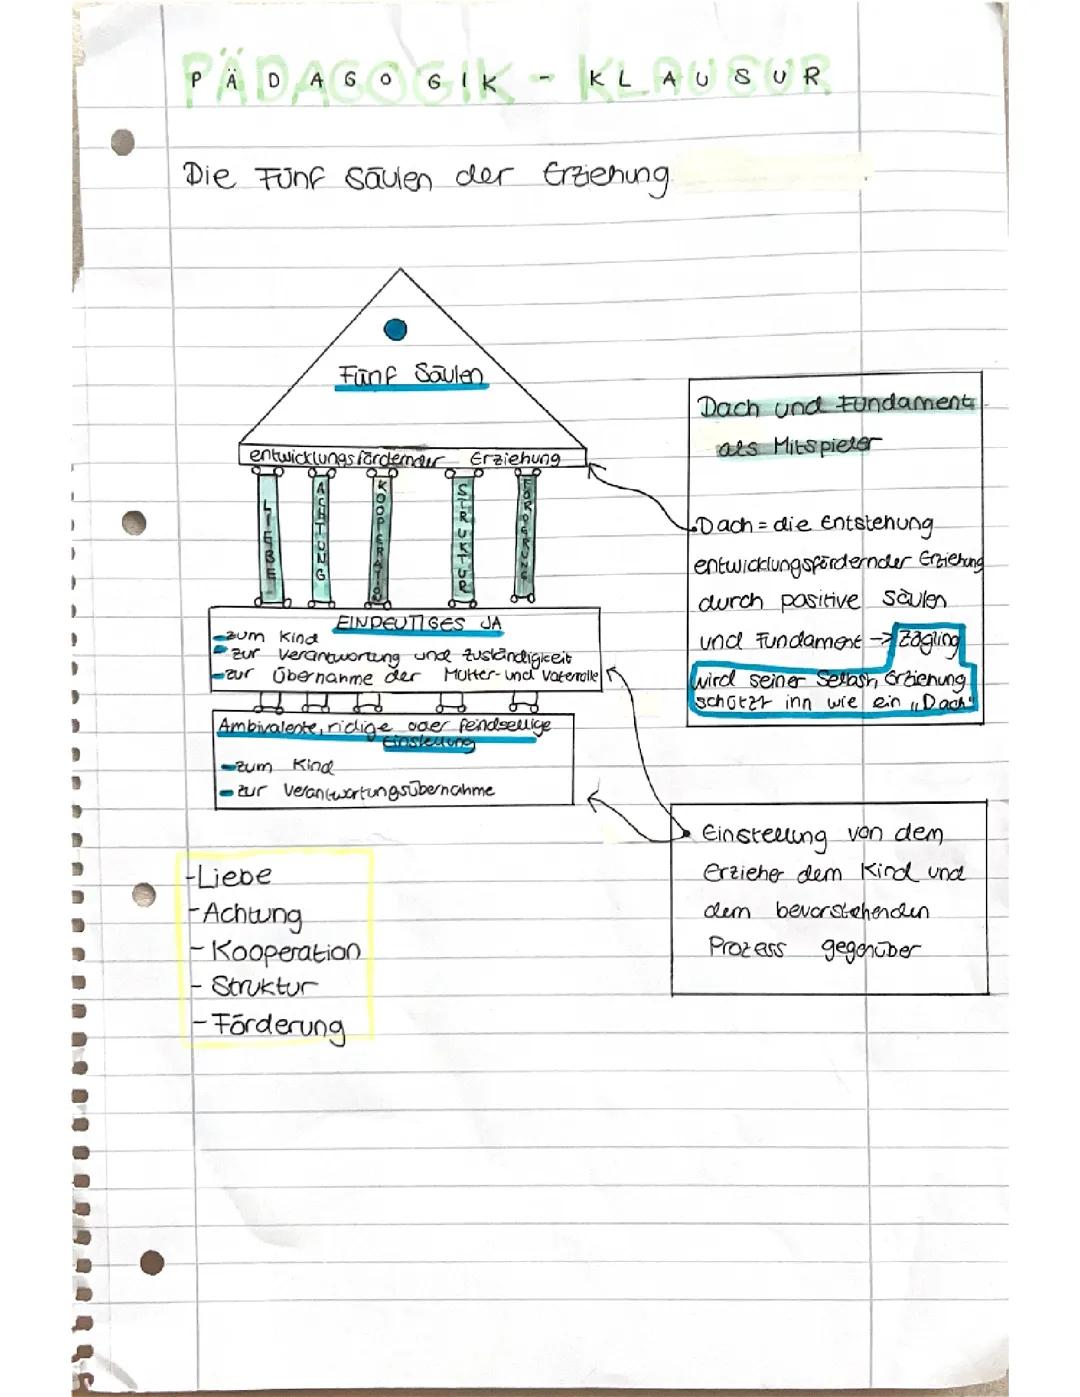 PÄDAGOGIK - KLAUSUR
Die Fünf Säulen der Erziehung
Fünf Säulen
entwicklungsfördernder Erziehung
LIEBE
ACHTUNG
KOOPERATION
STRUKTUR
FÖRDERUNG
EINDEUTIGES JA
-zum Kind
-zur Verantwortung und Zuständigkeit
-zur Übernahme der Mutter- und Vaterrolle
Ambivalente, ridige oder feindsellige
Einstellung
-zum Kind
-zur Verantwortungsübernahme
-Liebe
-Achtung
-Kooperation
-Struktur
-Förderung
Dach und Fundament
als Mitspieler
Dach = die Entstehung
entwicklungsfördernder Erziehung
durch positive Säulen
und Fundament → Zögling
wird seiner Selbsh, Erziehung
schützt inn wie ein „Dach"
Einstellung von dem
Erzieher dem Kind und
dem bevorstehenden
Prozess gegenüber